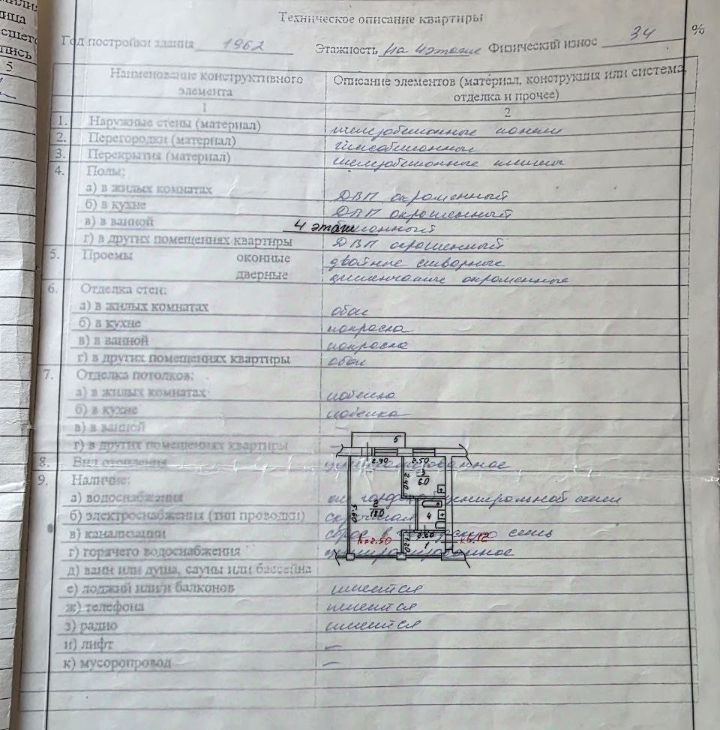 Техническое описание квартиры
Год постройки здания 1962 Этажность на 4 этаже Физический износ 34 %
Наименование конструктивного элемента
Описание элементов (материал, конструкция или система, отделка и прочее)
1
2
1. Наружные стены (материал) железобетонные панели
2. Перегородки (материал) гипсобетонные
3. Перекрытия (материал) железобетонные плиты
4. Полы:
а) в жилых комнатах ДВП окрашенный
б) в кухне ДВП окрашенный
в) в ванной бетонный
4 этаж
г) в других помещениях квартиры ДВП окрашенный
5. Проемы оконные двойные створные
дверные окрашенные
6. Отделка стен:
а) в жилых комнатах обои
б) в кухне покраска
в) в ванной покраска
г) в других помещениях квартиры обои
7. Отделка потолков:
а) в жилых комнатах побелка
б) в кухне побелка
в) в ванной –
г) в других помещениях квартиры –
8. Вид отопления
9. Наличие:
а) водоснабжения от центральной сети
б) электроснабжения (тип проводки)
в) канализации сеть
г) горячего водоснабжения
д) ванн или душа, сауны или бассейна
е) лоджий или и балконов имеется
ж) телефона имеется
з) радио имеется
и) лифт –
к) мусоропровод –
5
2.90 2.50
6.0
18.0
4
1
h=2.50